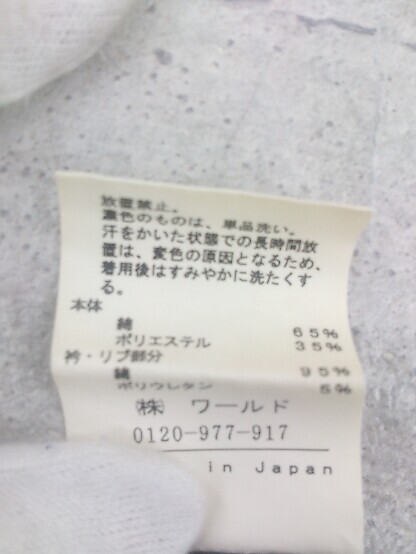 放置禁止。
濃色のものは、単品洗い。
汗をかいた状態での長時間放
置は、変色の原因となるため、
着用後はすみやかに洗たくす
る。
本体
綿 65%
ポリエステル 35%
衿・リブ部分
綿 95%
ポリウレタン 5%
㈱ ワールド
0120-977-917
in Japan